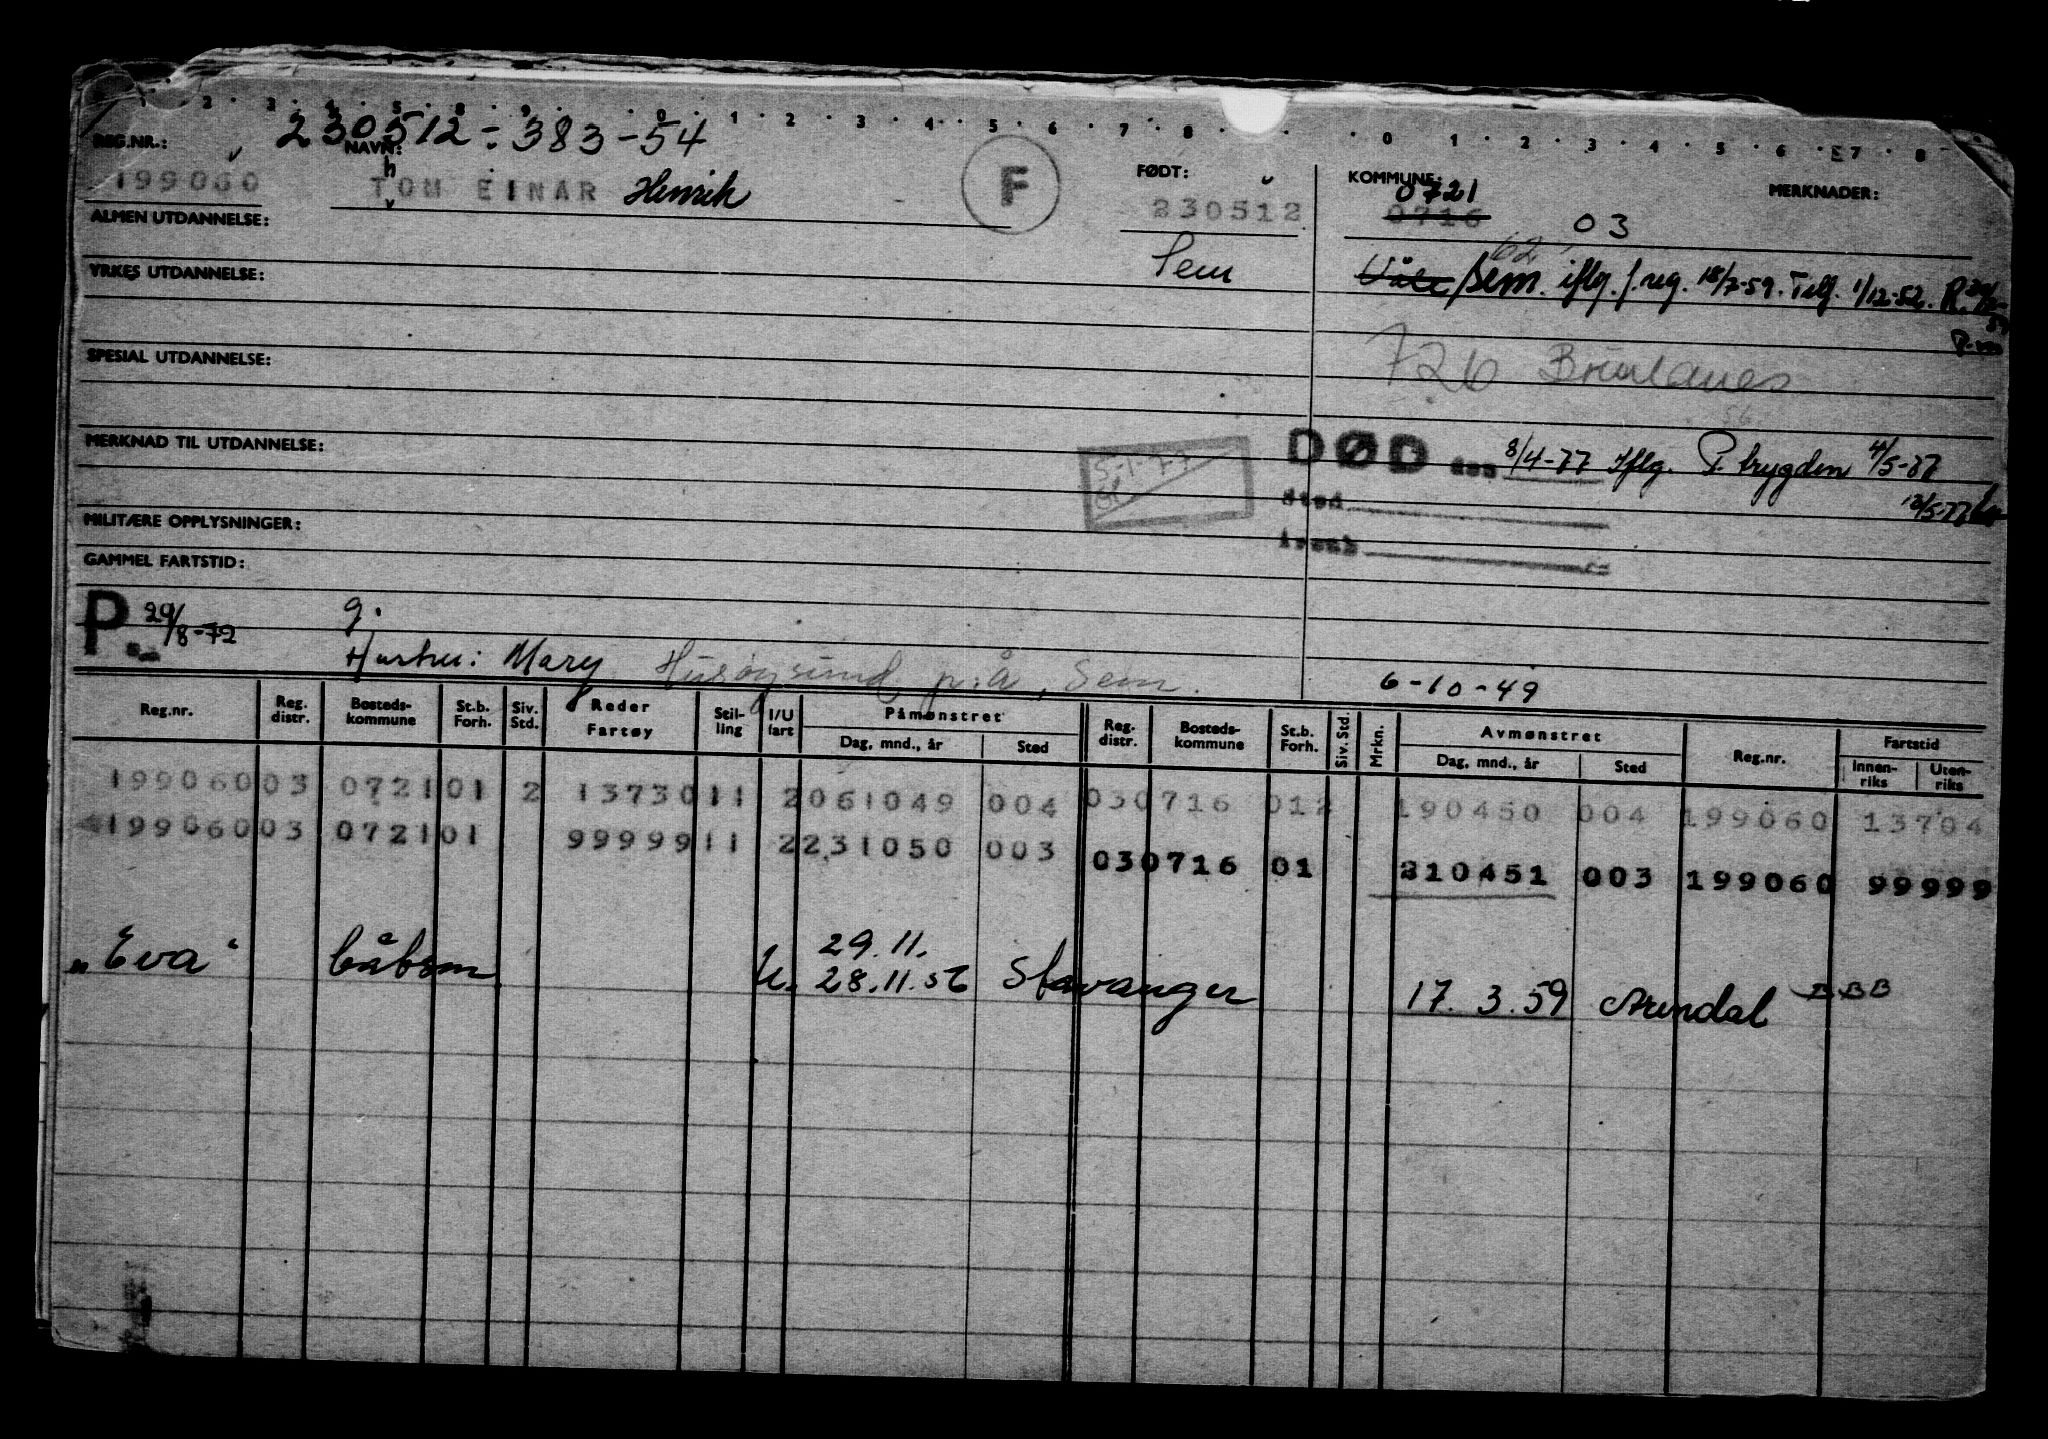 1 · 2 · 3 · 4 · 5 · 8 · 9 · 0 · 1 · 2 · 3 · 4 · 5 · 6 · 7 · 8 · 0 · 1 · 2 · 3 · 4 · 5 · 6 · 7 · 8
230512-383-54
REG.NR.: NAVN: FØDT: KOMMUNE: MERKNADER:
0721
199060 TOM h EINAR Henrik F 230512 0716 03
ALMEN UTDANNELSE:
Sem Våle/Sem. iflg. f.reg. 18/7-59. Telf. 1/12-52.
62
YRKES UTDANNELSE:
726 Brunlanes
SPESIAL UTDANNELSE:
56
MERKNAD TIL UTDANNELSE:
5-1-77
DØD den 8/4-77 Iflg. P. trygden 4/5-77
Sted
12/5-77
MILITÆRE OPPLYSNINGER:
Årsak
GAMMEL FARTSTID:
P. 29/8-72 g.
Hustru: Mary Husøysund p.å, Sem.
6-10-49
Reg.nr. Reg. distr. Bosteds-kommune St.b. Forh. Siv. Std. Reder Fartøy Stil-ling I/U fart Påmønstret Dag, mnd., år Sted Reg. distr. Bosteds-kommune St.b. Forh. Siv. Std. Mrkn. Avmønstret Dag, mnd., år Sted Reg.nr. Fartstid Innen-riks Uten-riks
199060 03 0721 01 2 13730 11 2 061049 004 03 0716 01 2 190450 004 199060 13704
199060 03 0721 01 99999 11 2 231050 003 03 0716 01 210451 003 199060 99999
29.11.
"Eva" båtsm. U. 28.11.56 Stavanger 17.3.59 Arendal BBB